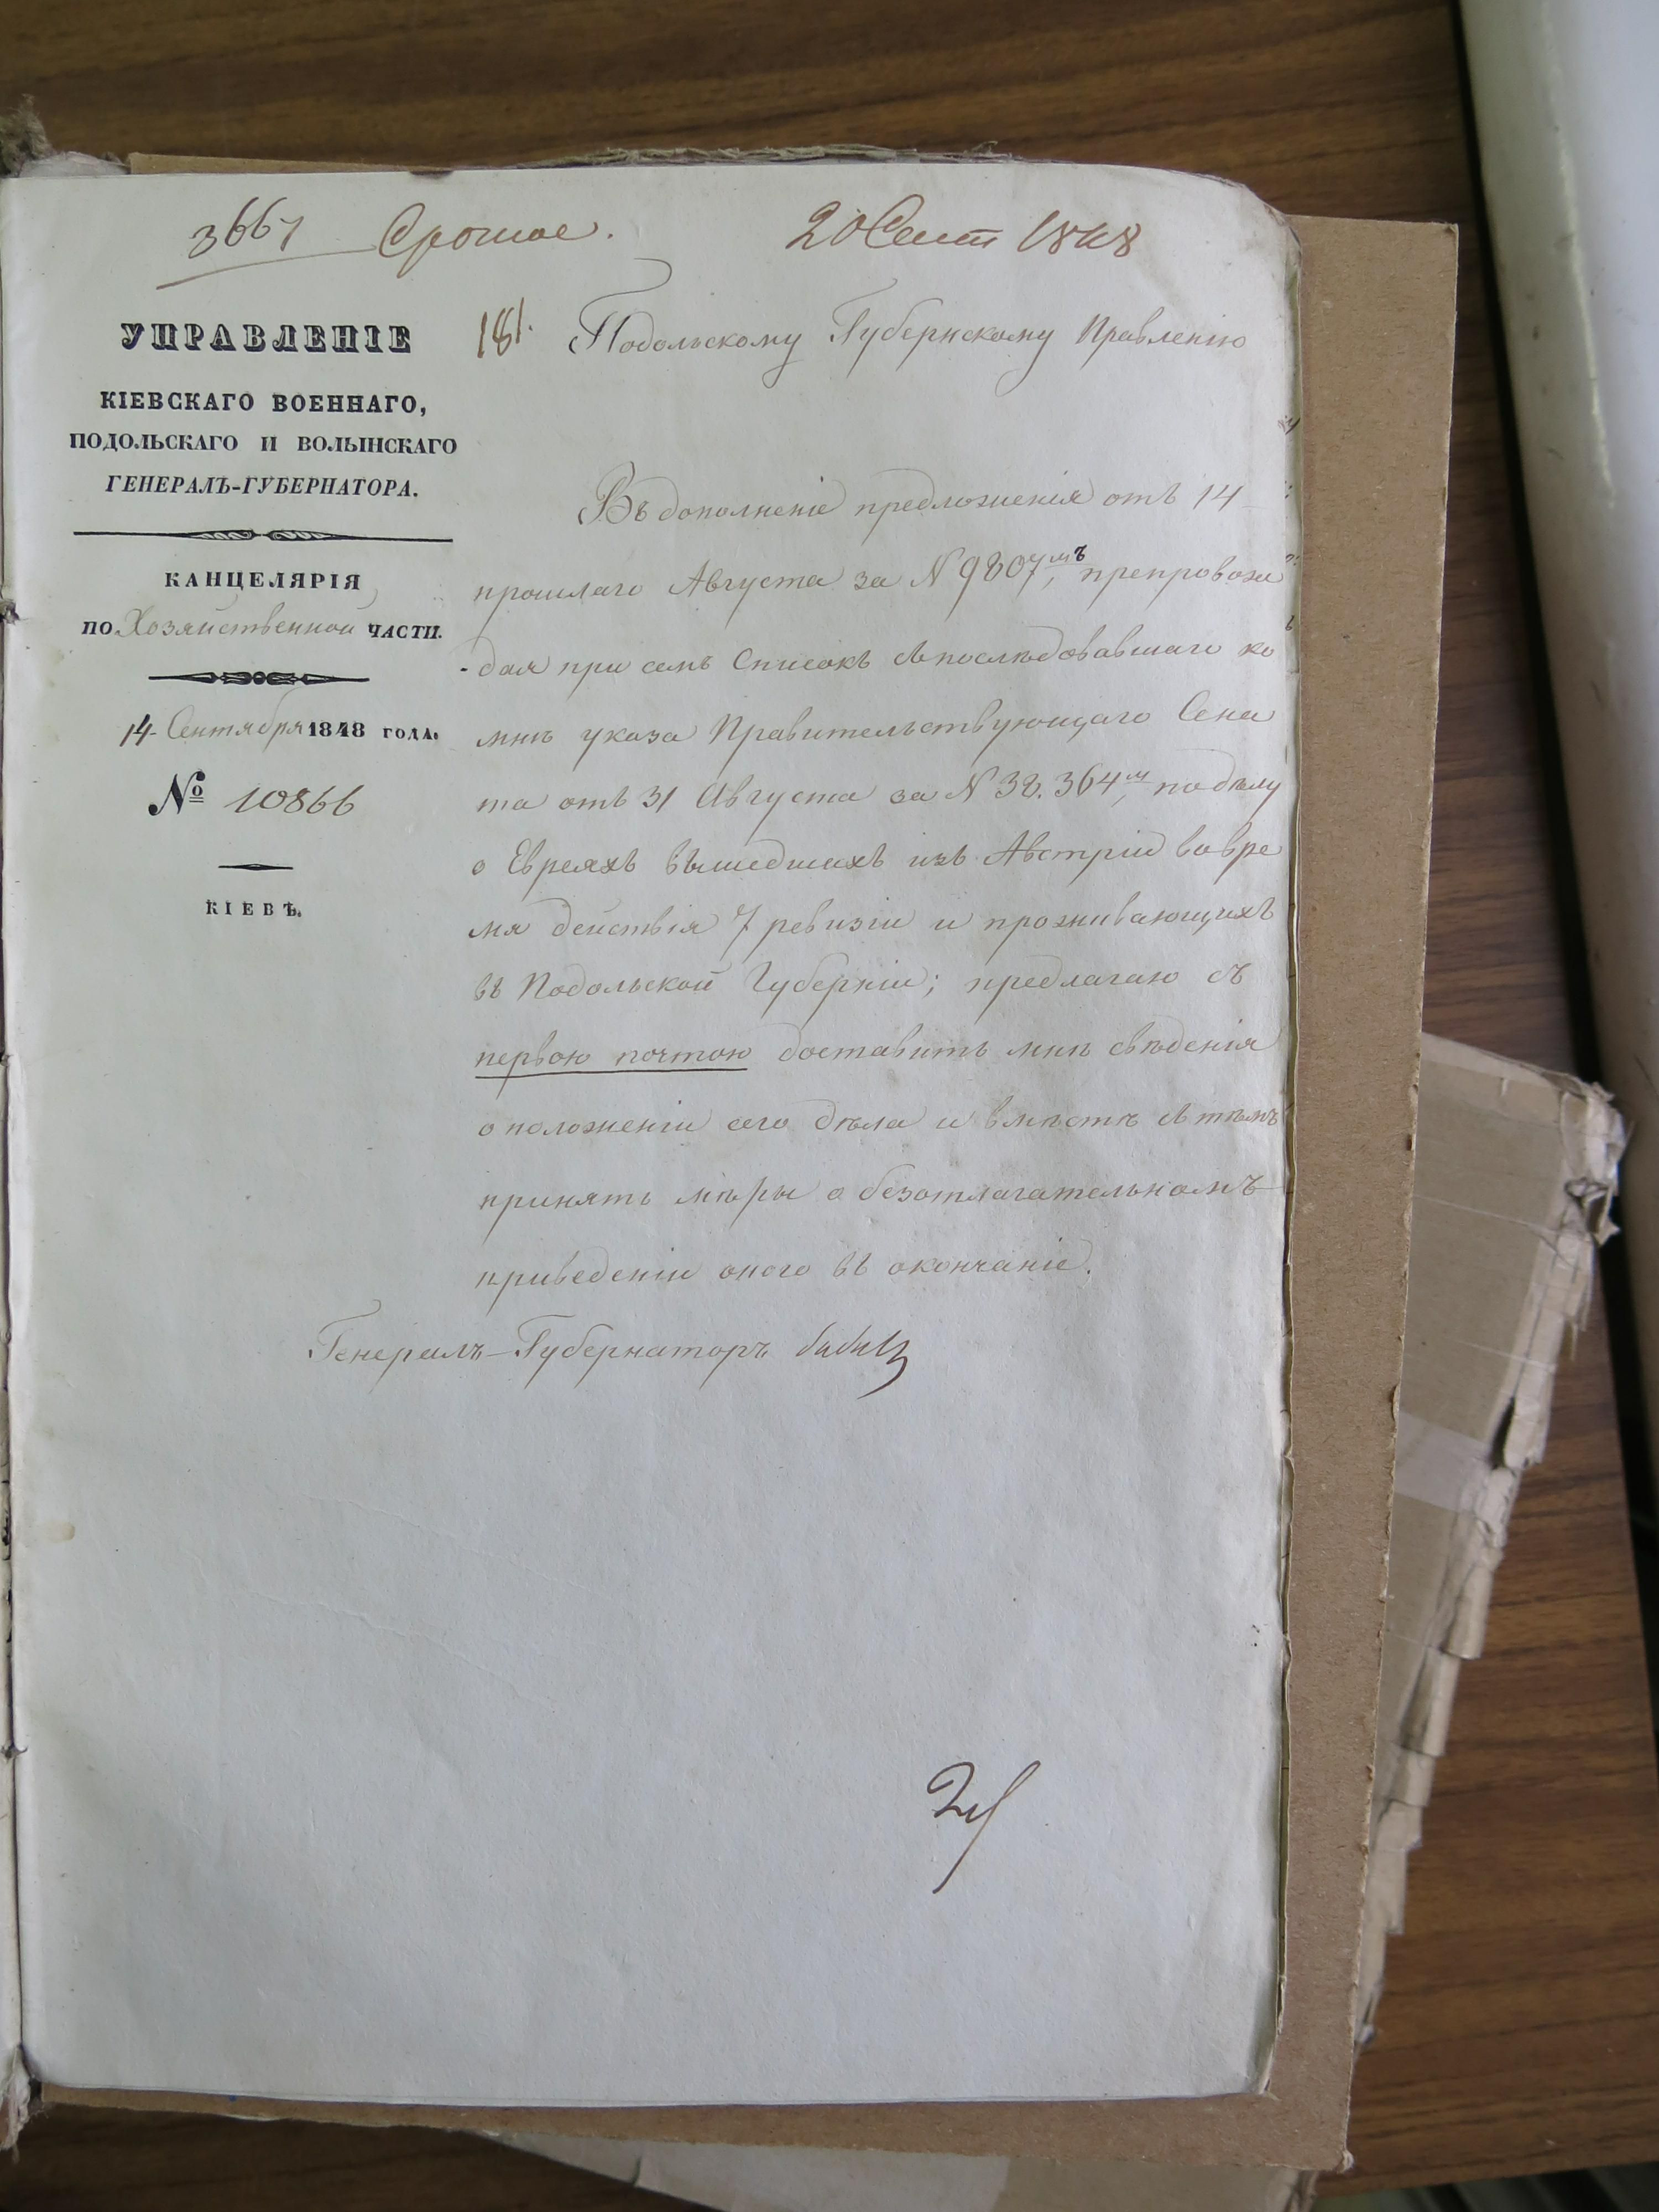 3661 Срочное. 20 Сент 1848
УПРАВЛЕНІЕ
КІЕВСКАГО ВОЕННАГО,
ПОДОЛЬСКАГО И ВОЛЫНСКАГО
ГЕНЕРАЛЪ-ГУБЕРНАТОРА.
КАНЦЕЛЯРІЯ
ПО Хозяйственной ЧАСТИ.
14 Сентября 1848 ГОДА.
№ 10866
КІЕВЪ.
181. Подольскому Губернскому Правленію
Въ дополненіе предложенія отъ 14
прошлаго Августа за N 9807мъ, препровож
дая при семъ Списокъ съ последовавшаго ко
мнѣ указа Правительствующаго Сена
та отъ 31 Августа за N 38.364м, по дѣлу
о Евреяхъ вышедшихъ изъ Австріи во вре
мя действія 7 ревизіи и проживающихъ
въ Подольской Губерніи; предлагаю съ
первою почтою доставить мнѣ свѣденія
о положеніи сего дѣла и вмѣстѣ съ тѣмъ
принять мѣры о безотлагательномъ
приведеніи оного въ окончаніе.
Генералъ-Губернаторъ